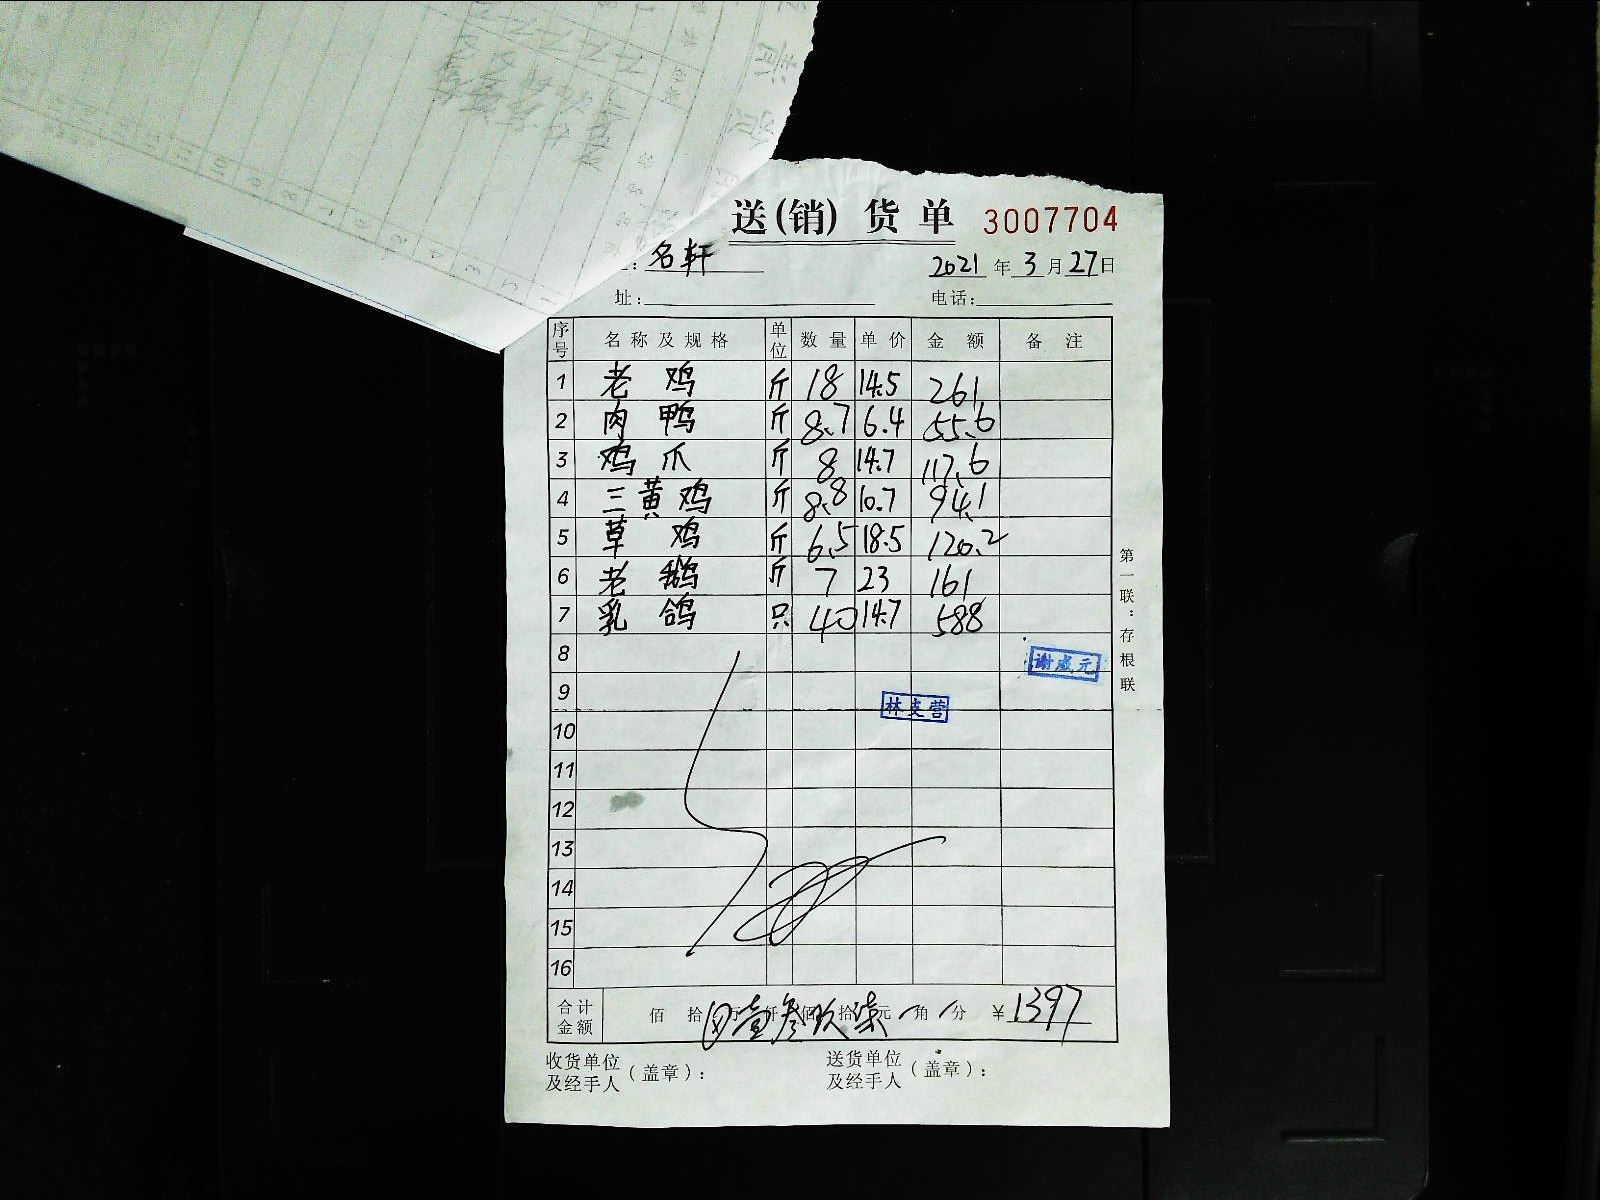 送(销) 货 单 3007704
名轩 2021 年 3 月 27 日
址: 电话:
序号 名称及规格 单位 数量 单价 金额 备注
1 老鸡 斤 18 14.5 261
2 肉鸭 斤 8.7 6.4 55.6
3 鸡爪 斤 8 14.7 117.6
4 三黄鸡 斤 8.8 10.7 94.1
5 草鸡 斤 6.5 18.5 120.2
6 老鹅 斤 7 23 161
7 乳鸽 只 40 14.7 588
8
谢成元
9
林支营
10
11
12
13
14
15
16
合计金额 佰 拾 万 仟 佰 拾 元 角 分 ¥1397
壹叁玖柒
收货单位及经手人(盖章): 送货单位及经手人(盖章):
第一联:存根联